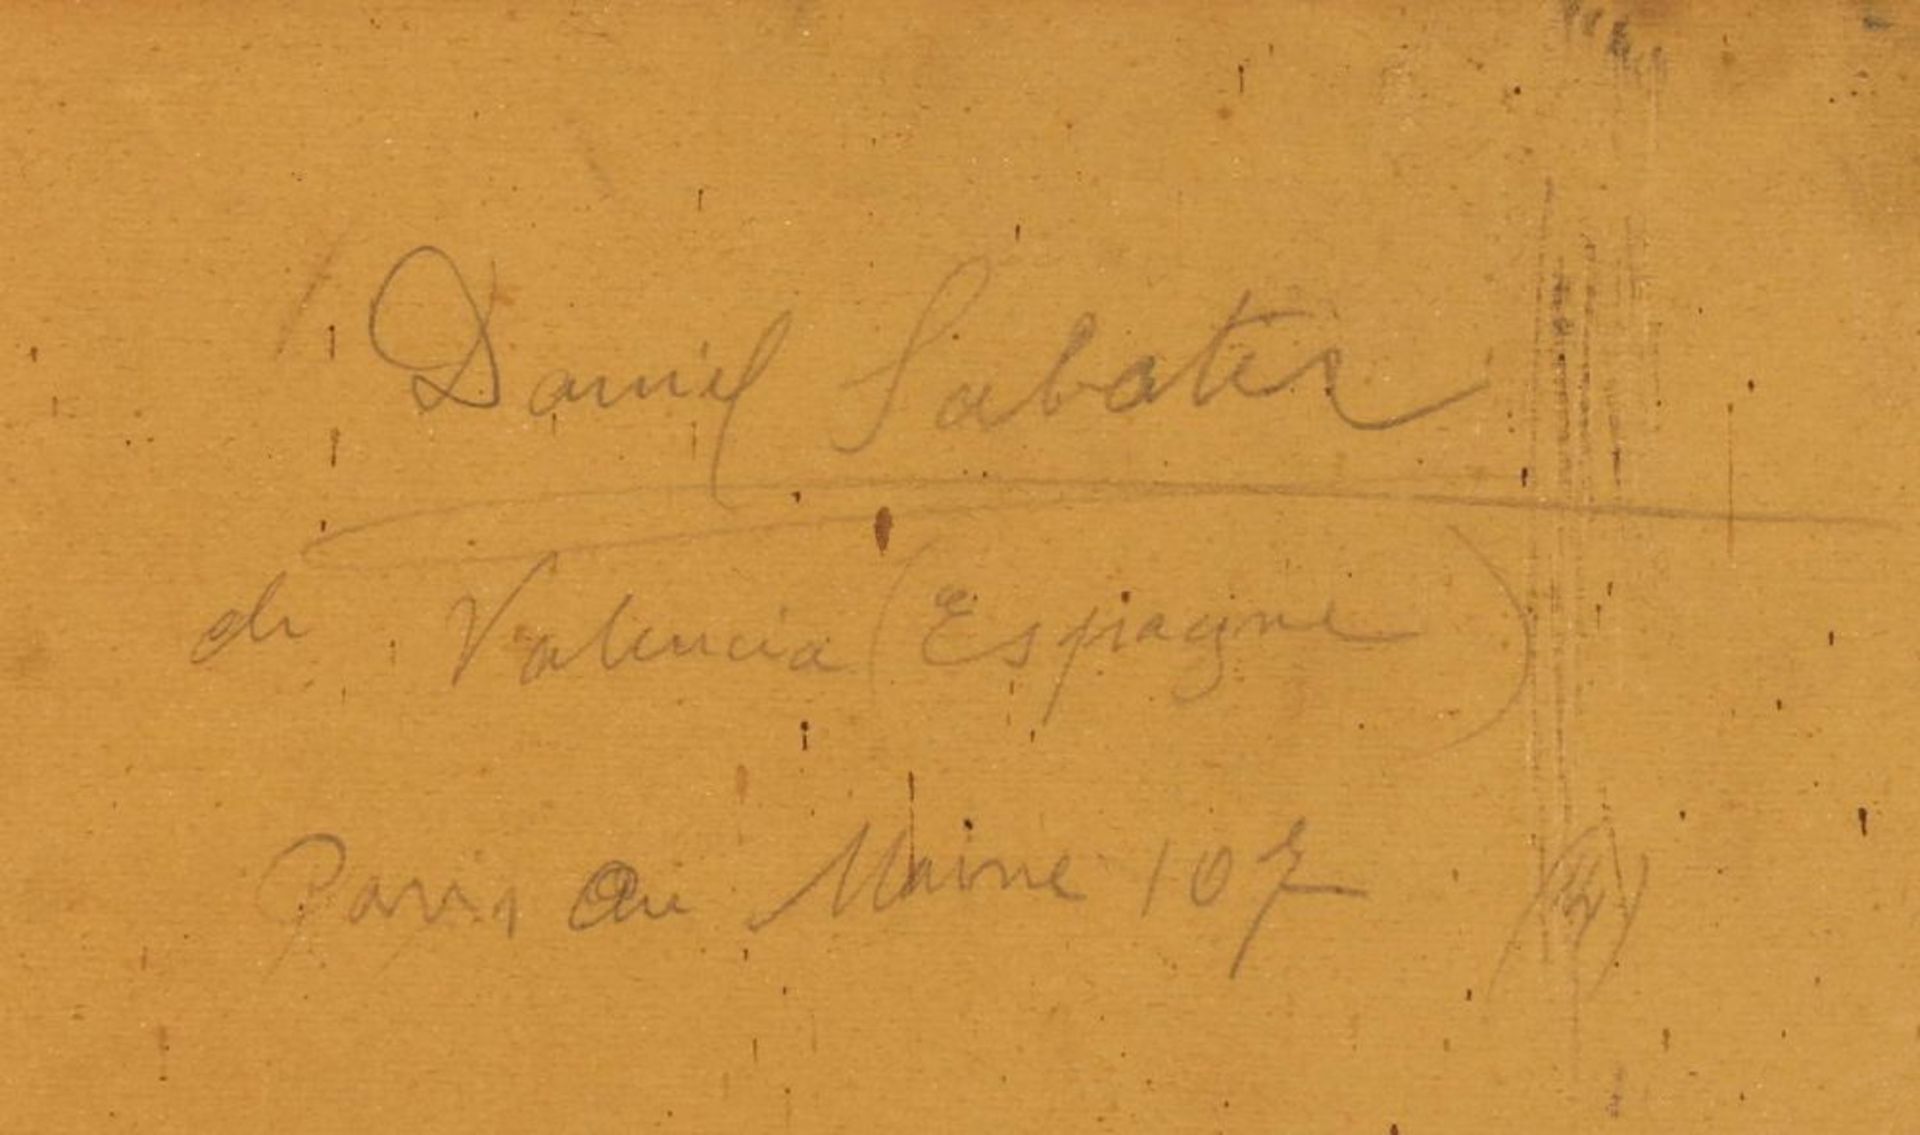 Daniel Sabater
de Valencia (Espagne)
Paris Av Maine 107 (14)